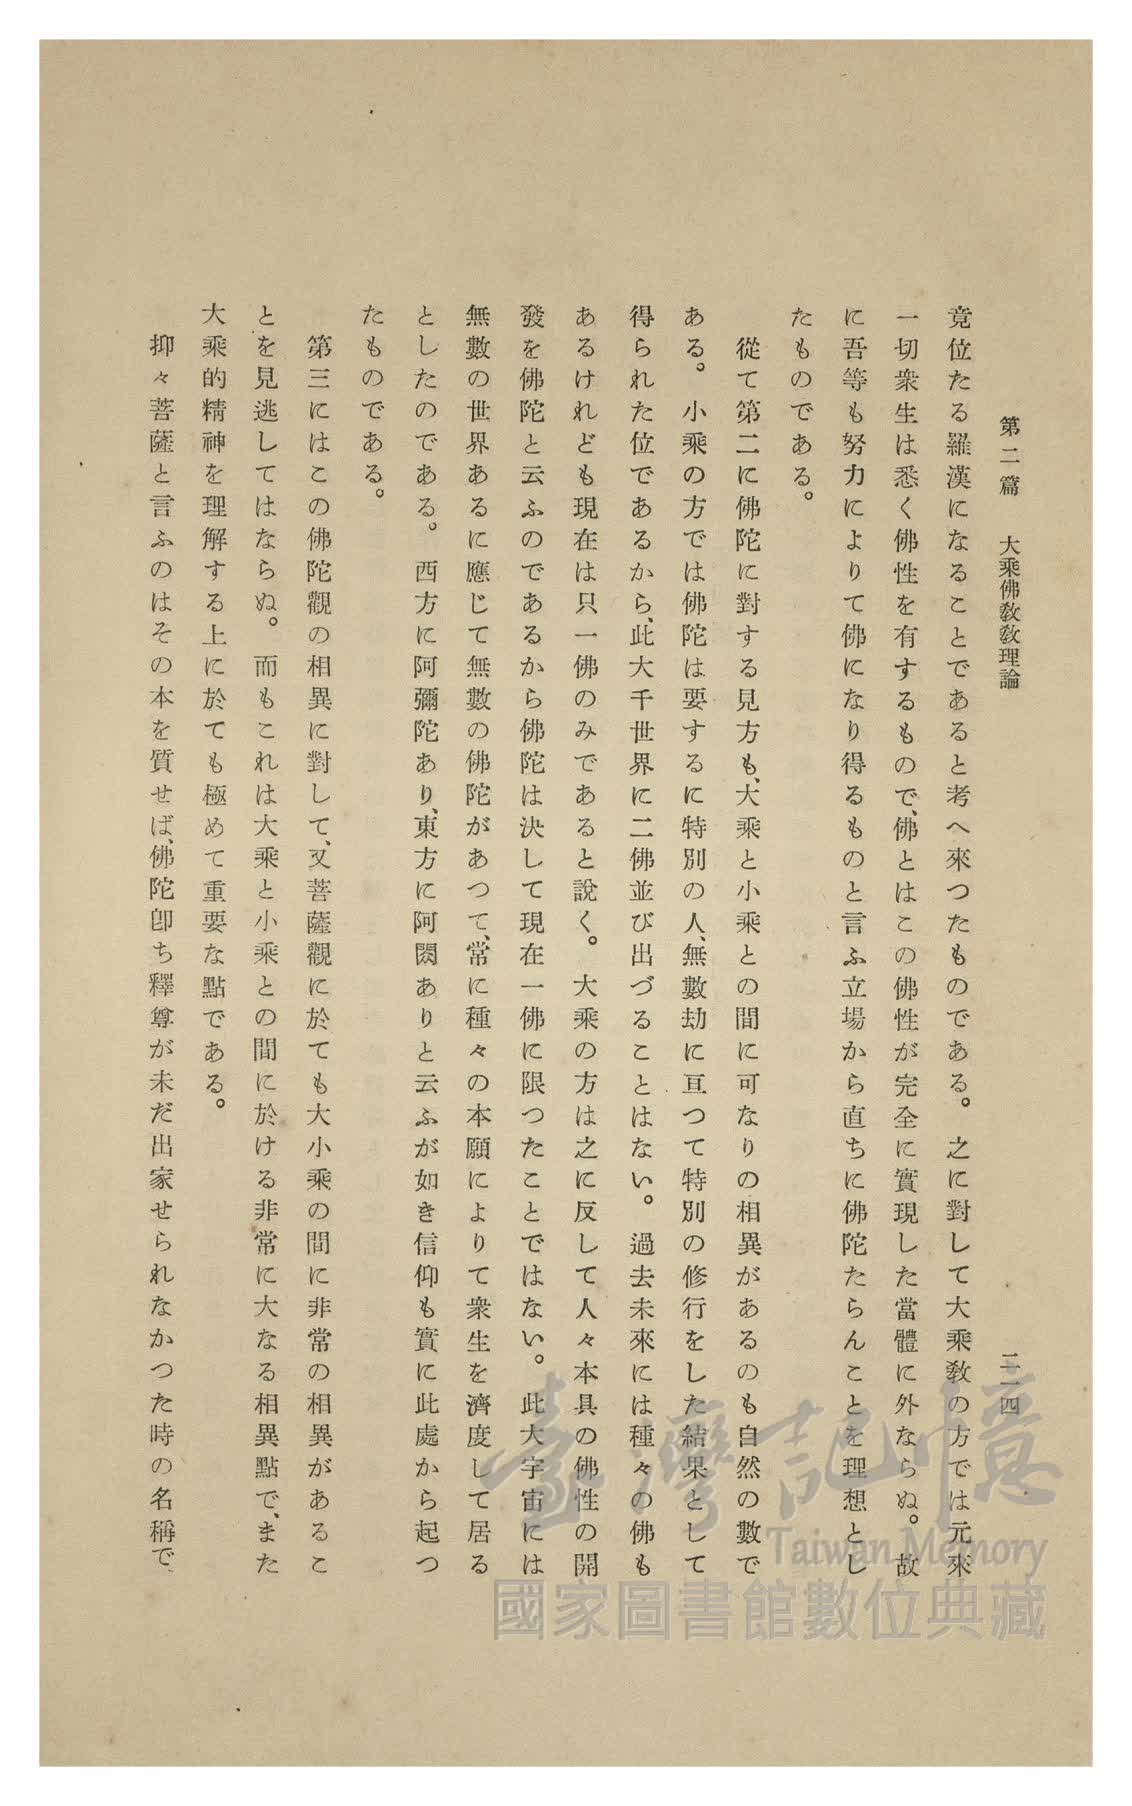 第二篇　大乘佛敎敎理論
二一四
竟位たる羅漢になることであると考へ來つたものである。之に對して大乘敎の方では元來
一切衆生は悉く佛性を有するもので、佛とはこの佛性が完全に實現した當體に外ならぬ。故
に吾等も努力によりて佛になり得るものと言ふ立場から直ちに佛陀たらんことを理想とし
たものである。
從て第二に佛陀に對する見方も、大乘と小乘との間に可なりの相異があるのも自然の數で
ある。小乘の方では佛陀は要するに特別の人、無數劫に亘つて特別の修行をした結果として
得られた位であるから、此大千世界に二佛並び出づることはない。過去未來には種々の佛も
あるけれども現在は只一佛のみであると說く。大乘の方は之に反して人々本具の佛性の開
發を佛陀と云ふのであるから佛陀は決して現在一佛に限つたことではない。此大宇宙には
無數の世界あるに應じて無數の佛陀があつて、常に種々の本願によりて衆生を濟度して居る
としたのである。西方に阿彌陀あり、東方に阿閦ありと云ふが如き信仰も實に此處から起つ
たものである。
第三にはこの佛陀觀の相異に對して、又菩薩觀に於ても大小乘の間に非常の相異があるこ
とを見逃してはならぬ。而もこれは大乘と小乘との間に於ける非常に大なる相異點で、また
大乘的精神を理解する上に於ても極めて重要な點である。
抑々菩薩と言ふのはその本を質せば、佛陀卽ち釋尊が未だ出家せられなかつた時の名稱で、
臺灣記憶
Taiwan Memory
國家圖書館數位典藏